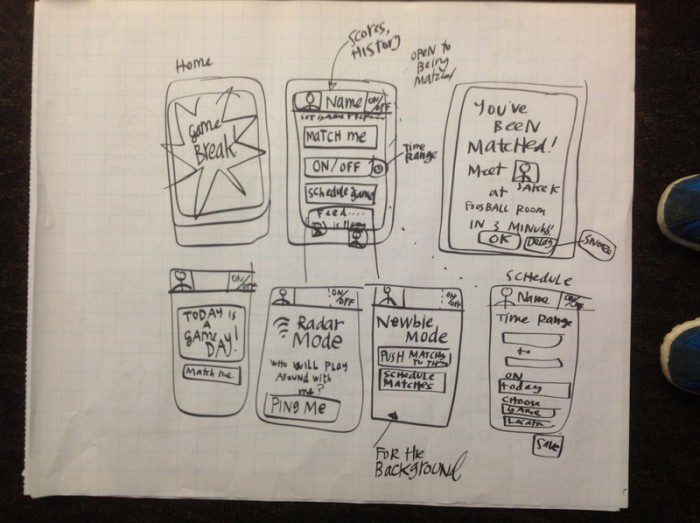 Home
Game
Break!
Scores,
History
Name
ON/OFF
Match me
ON/OFF
Schedule game
Feed....
is Playing
Time
Range
OPEN to
Being
Matched
You've
BEEN
Matched!
Meet
at
FOOSBALL ROOM
IN 3 MINUTES!
OK
Delay
Snooze
ON/OFF
TODAY IS
A
GAME
DAY!
Match me
ON/OFF
Radar
Mode
Who WILL PLAY
Around with
me?
PING Me
ON/OFF
Newbie
Mode
PUSH MATCHS
Schedule
Matches
FOR the
Background
SCHEDULE
Name
ON/OFF
Time Range
to
ON
today
CHOOSE
GAME
Locatn
SAVE